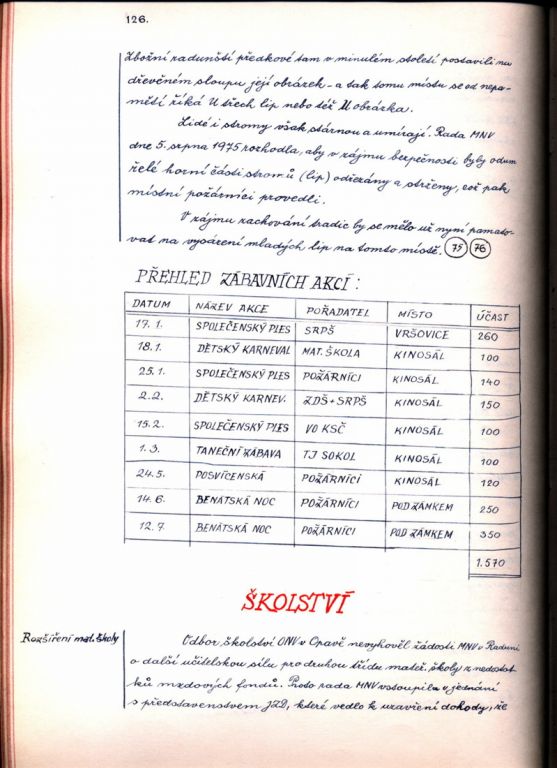 126.
Zbožní radunští předkové tam v minulém století postavili na
dřevěném sloupu její obrázek - a tak tomu místu se od nepa-
měti říká U třech lip nebo též U obrázka.
Lidé i stromy však stárnou a umírají. Rada MNV
dne 5. srpna 1975 rozhodla, aby v zájmu bezpečnosti byly odum
želé horní části stromů (lip) odřezány a strženy, což pak
místní požárníci provedli.
V zájmu zachování tradic by se mělo už nyní pamato-
vat na vysázení mladých lip na tomto místě. 75 76
PŘEHLED ZÁBAVNÍCH AKCÍ :
DATUM NÁZEV AKCE POŘADATEL MÍSTO ÚČAST
17. 1. SPOLEČENSKÝ PLES SRPŠ VRŠOVICE 260
18.1. DĚTSKÝ KARNEVAL MAT. ŠKOLA KINOSÁL 100
25.1. SPOLEČENSKÝ PLES POŽÁRNÍCI KINOSÁL 140
2.2. DĚTSKÝ KARNEV. ZDŠ + SRPŠ KINOSÁL 150
15.2. SPOLEČENSKÝ PLES VO KSČ KINOSÁL 100
1.3. TANEČNÍ ZÁBAVA TJ SOKOL KINOSÁL 100
24.5. POSVÍCENSKÁ POŽÁRNÍCI KINOSÁL 120
14.6. BENÁTSKÁ NOC POŽÁRNÍCI POD ZÁMKEM 250
12.7. BENÁTSKÁ NOC POŽÁRNÍCI POD ZÁMKEM 350
1.570
ŠKOLSTVÍ
Rozšíření mat. školy
Odbor školství ONV v Opavě nevyhověl žádosti MNV v Raduni
o další učitelskou sílu pro druhou třídu mateř. školy z nedostat
ků mzdových fondů. Proto rada MNV vstoupila v jednání
s představenstvem JZD, které vedlo k uzavření dohody, že